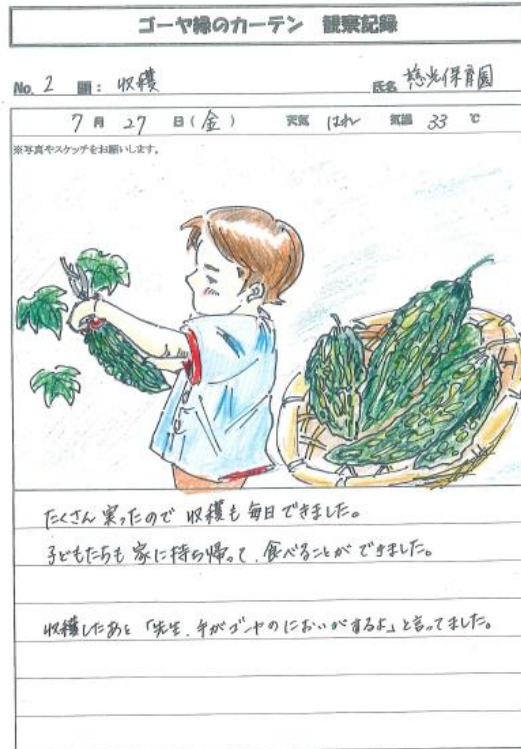 ゴーヤ緑のカーテン 観察記録
No. 2 題: 収穫 氏名 慈光保育園
7 月 27 日 (金) 天気 はれ 気温 33 ℃
※写真やスケッチをお願いします。
たくさん実ったので 収穫も毎日できました。
子どもたちも家に持ち帰って、食べることができました。
収穫したあと「先生、手がゴーヤのにおいがするよ」と言ってました。